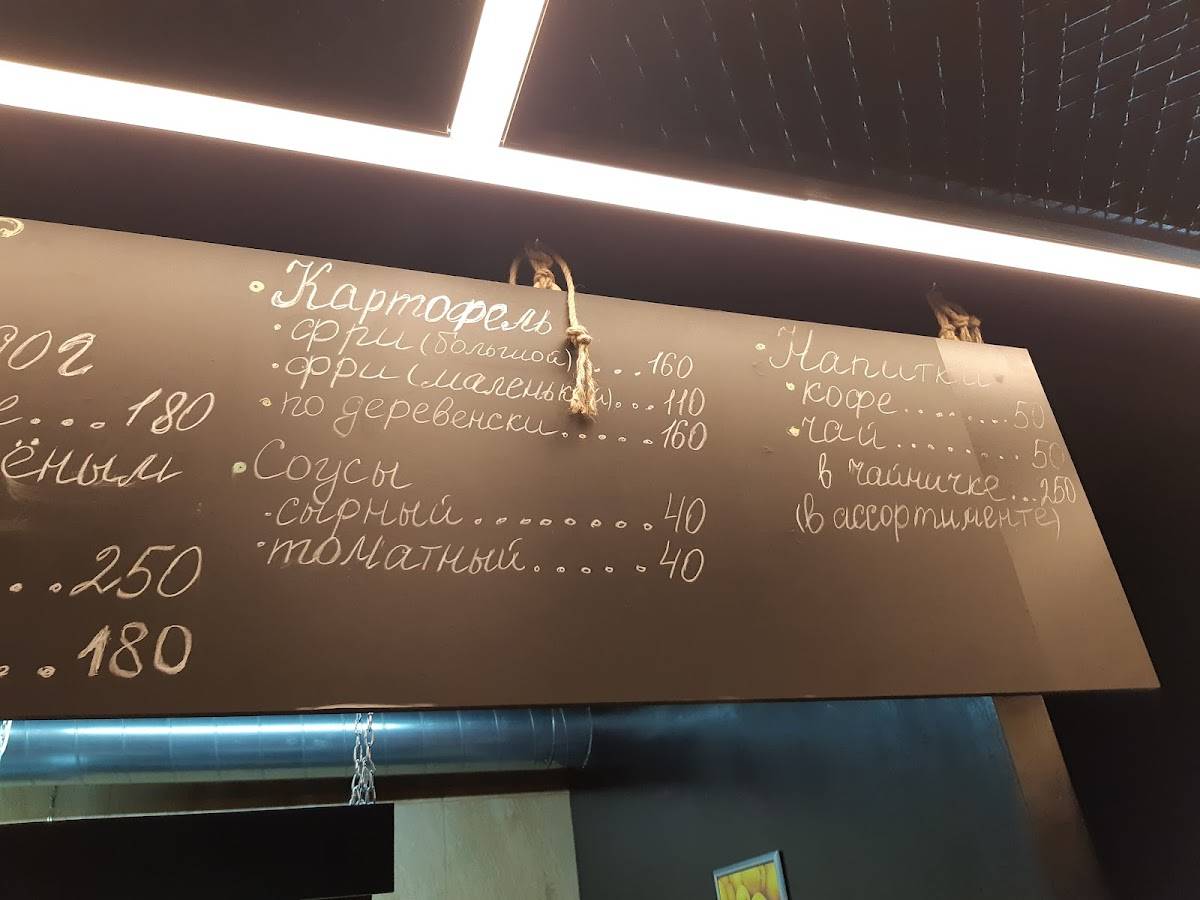 180
250
180
• Картофель
• фри (большой) ....160
• фри (маленький)....110
• по деревенски......160
• Соусы
• сырный.........40
• томатный......40
• Напитки
• кофе........50
• чай........50
в чайничке...250
(в ассортименте)